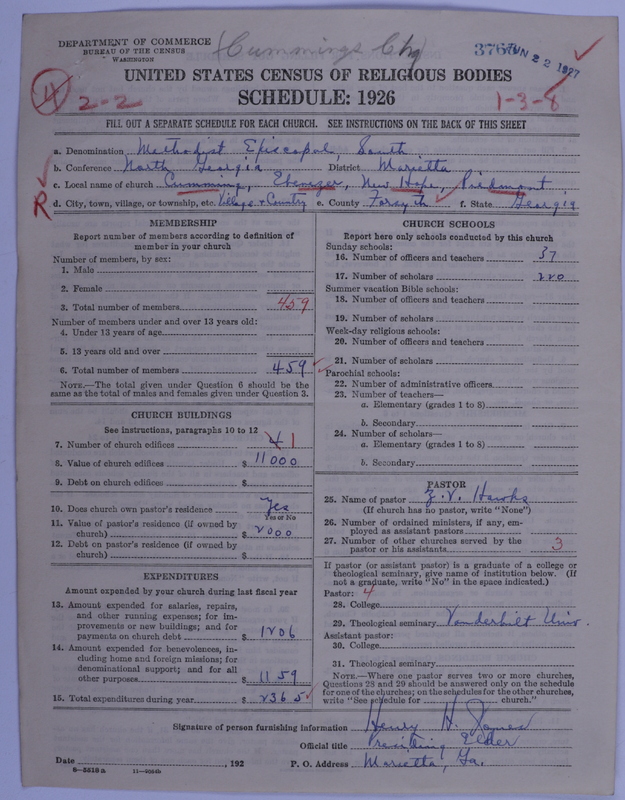 DEPARTMENT OF COMMERCE
BUREAU OF THE CENSUS
WASHINGTON
(Cummings Chg)
3767
JUN 22 1927
UNITED STATES CENSUS OF RELIGIOUS BODIES
SCHEDULE: 1926
4
2-2
1-3-8
FILL OUT A SEPARATE SCHEDULE FOR EACH CHURCH. SEE INSTRUCTIONS ON THE BACK OF THIS SHEET
a. Denomination Methodist Episcopal, South
b. Conference North Georgia District Marietta
c. Local name of church Cumming, Ebenezer, New Hope, Piedmont
R
d. City, town, village, or township, etc. Village & Country e. County Forsyth f. State Georgia
MEMBERSHIP
Report number of members according to definition of
member in your church
Number of members, by sex:
1. Male
2. Female
3. Total number of members 459
Number of members under and over 13 years old:
4. Under 13 years of age
5. 13 years old and over
6. Total number of members 459
NOTE.—The total given under Question 6 should be the
same as the total of males and females given under Question 3.
CHURCH BUILDINGS
See instructions, paragraphs 10 to 12
7. Number of church edifices 4 1
8. Value of church edifices $ 11000
9. Debt on church edifices $
10. Does church own pastor's residence Yes
Yes or No
11. Value of pastor's residence (if owned by
church) $ 2000
12. Debt on pastor's residence (if owned by
church) $
EXPENDITURES
Amount expended by your church during last fiscal year
13. Amount expended for salaries, repairs,
and other running expenses; for im-
provements or new buildings; and for
payments on church debt $ 1206
14. Amount expended for benevolences, in-
cluding home and foreign missions; for
denominational support; and for all
other purposes $ 1159
15. Total expenditures during year $ 2365
CHURCH SCHOOLS
Report here only schools conducted by this church
Sunday schools:
16. Number of officers and teachers 37
17. Number of scholars 220
Summer vacation Bible schools:
18. Number of officers and teachers
19. Number of scholars
Week-day religious schools:
20. Number of officers and teachers
21. Number of scholars
Parochial schools:
22. Number of administrative officers
23. Number of teachers—
a. Elementary (grades 1 to 8)
b. Secondary
24. Number of scholars—
a. Elementary (grades 1 to 8)
b. Secondary
PASTOR
25. Name of pastor Z. V. Hawks
(If church has no pastor, write "None")
26. Number of ordained ministers, if any, em-
ployed as assistant pastors
27. Number of other churches served by the
pastor or his assistants 3
If pastor (or assistant pastor) is a graduate of a college or
theological seminary, give name of institution below. (If
not a graduate, write "No" in the space indicated.)
Pastor: 4
28. College
29. Theological seminary Vanderbilt Univ.
Assistant pastor:
30. College
31. Theological seminary
NOTE.—Where one pastor serves two or more churches,
Questions 28 and 29 should be answered only on the schedule
for one of the churches; on the schedules for the other churches,
write "See schedule for church."
Signature of person furnishing information Henry H. Jones
Official title Presiding Elder
Date , 192 P. O. Address Marietta, Ga.
8-5518 a 11-9094b